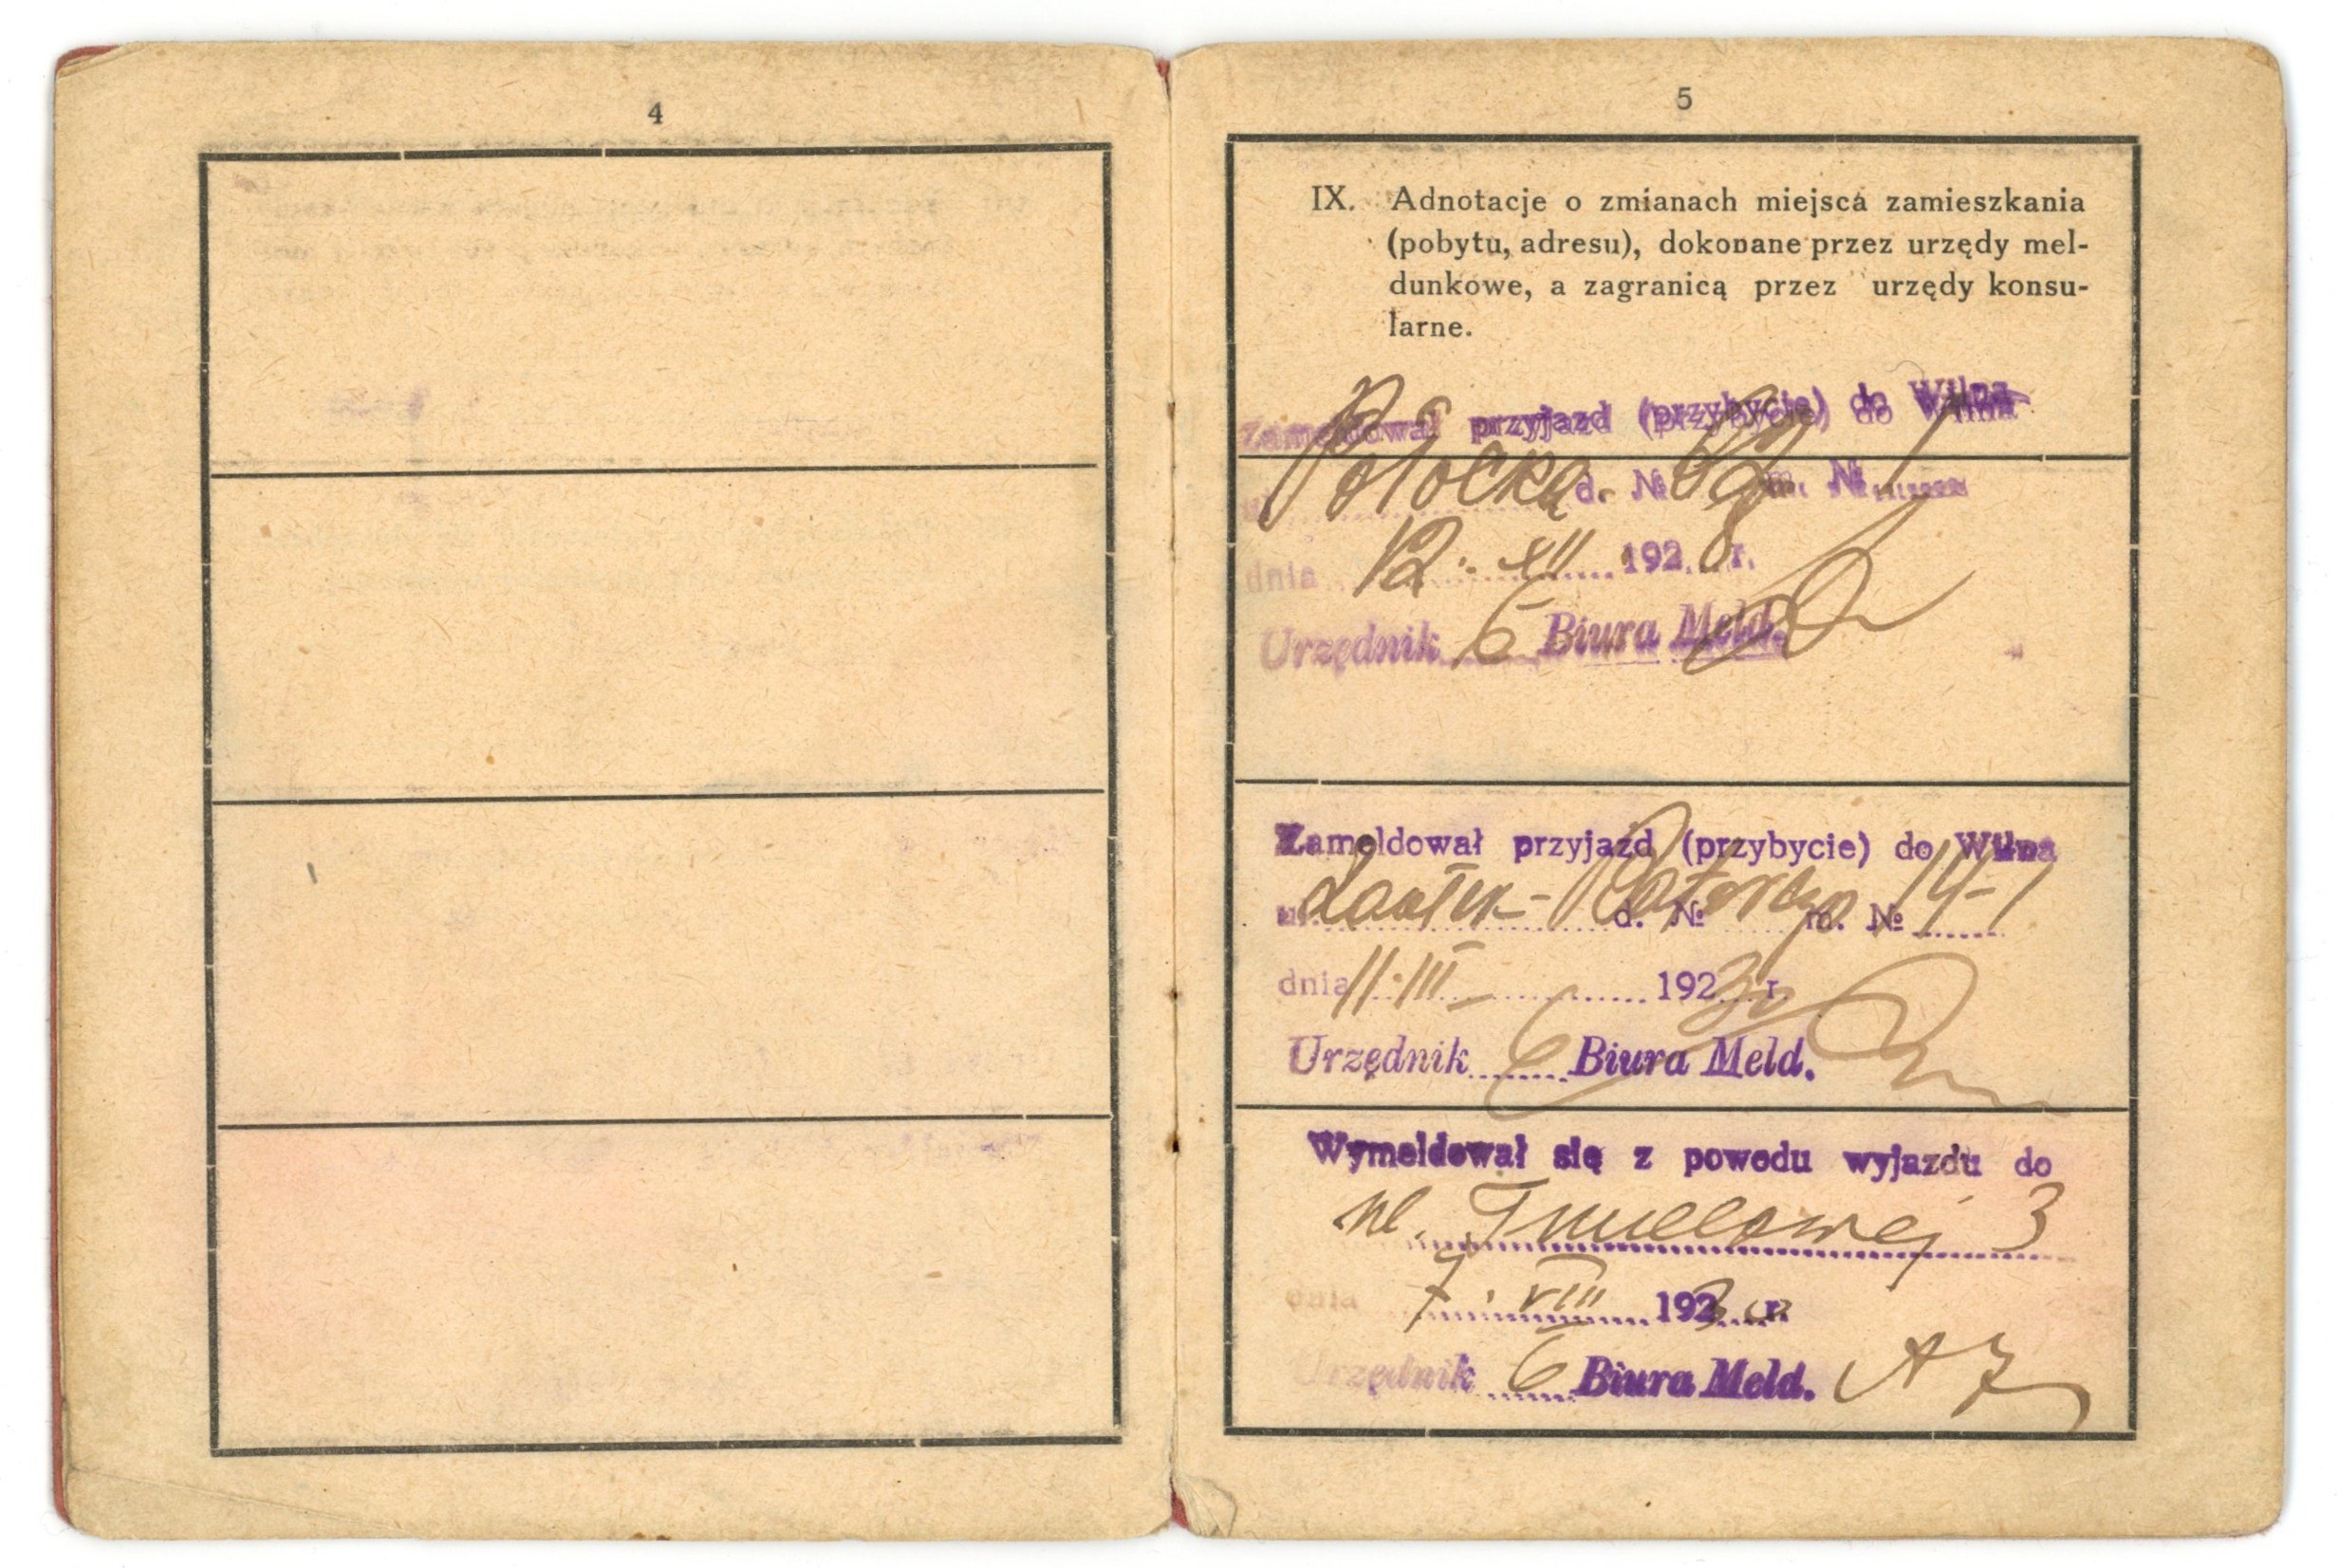 4
5
IX. Adnotacje o zmianach miejsca zamieszkania
(pobytu, adresu), dokonane przez urzędy mel-
dunkowe, a zagranicą przez urzędy konsu-
larne.
Zameldował przyjazd (przybycie) do Wilna
u Połocka d. № m. №
dnia 12. XII 1928 r.
Urzędnik 6 Biura Meld.
Zameldował przyjazd (przybycie) do Wilna
ul. d. № m. № 14-1
dnia 11.III 1923 r.
Urzędnik 6 Biura Meld.
Wymeldował się z powodu wyjazdu do
ul. 3
dnia 7. VIII 1923 r.
Urzędnik 6 Biura Meld.